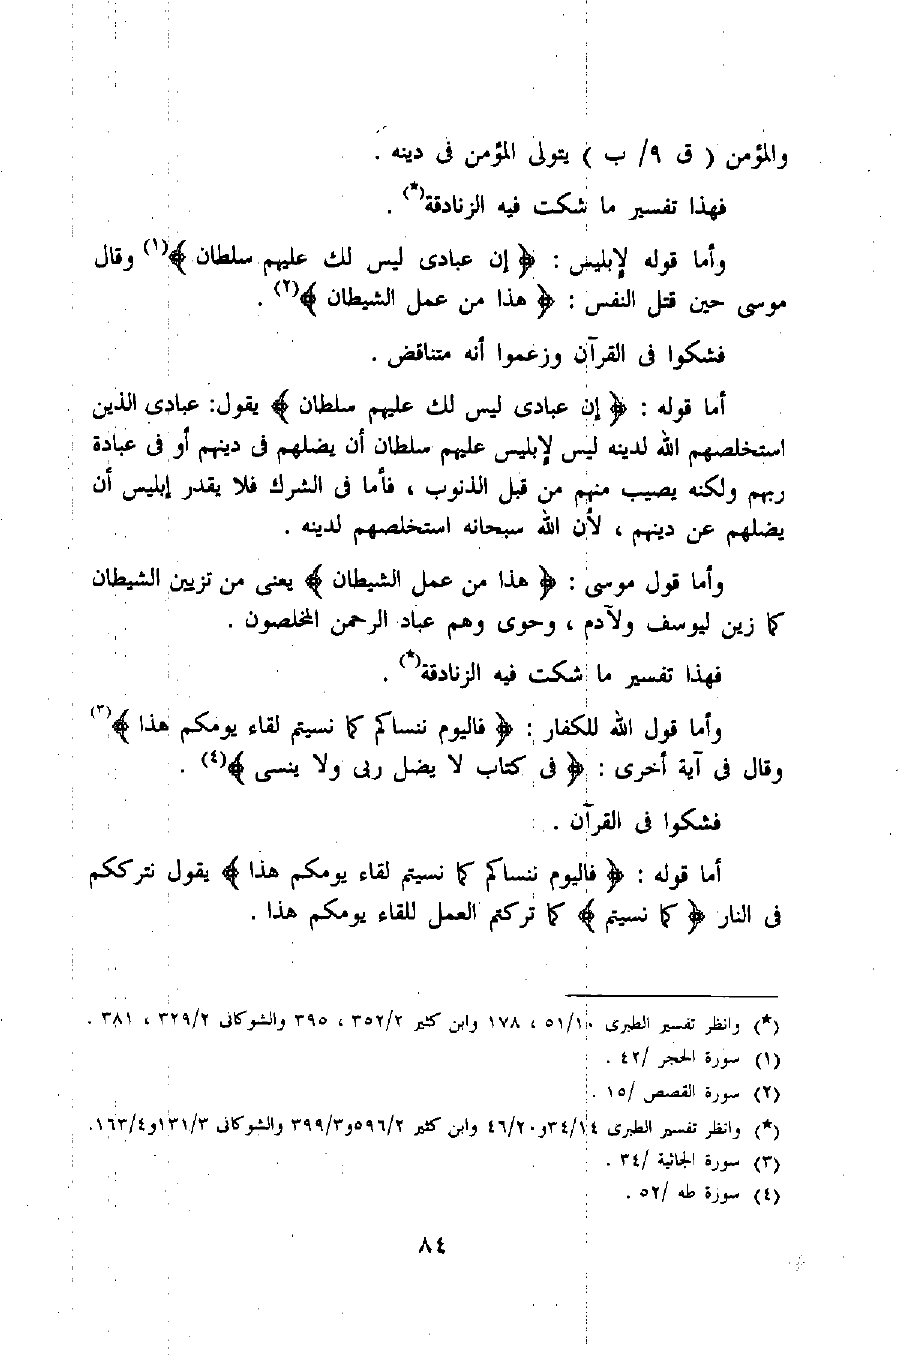 والمؤمن ( ق ٩/ ب ) يتولى المؤمن فى دينه .
فهذا تفسير ما شكت فيه الزنادقة(*) .
وأما قوله لإبليس : ﴿ إن عبادى ليس لك عليهم سلطان ﴾(١) وقال
موسى حين قتل النفس : ﴿ هذا من عمل الشيطان ﴾(٢) .
فشكوا فى القرآن وزعموا أنه متناقض .
أما قوله : ﴿ إن عبادى ليس لك عليهم سلطان ﴾ يقول: عبادى الذين
استخلصهم الله لدينه ليس لإبليس عليهم سلطان أن يضلهم فى دينهم أو فى عبادة
ربهم ولكنه يصيب منهم من قبل الذنوب ، فأما فى الشرك فلا يقدر إبليس أن
يضلهم عن دينهم ، لأن الله سبحانه استخلصهم لدينه .
وأما قول موسى : ﴿ هذا من عمل الشيطان ﴾ يعنى من تزيين الشيطان
كما زين ليوسف ولآدم ، وحوى وهم عباد الرحمن المخلصون .
فهذا تفسير ما شكت فيه الزنادقة(*) .
وأما قول الله للكفار : ﴿ فاليوم ننساكم كما نسيتم لقاء يومكم هذا ﴾(٣)
وقال فى آية أخرى : ﴿ فى كتاب لا يضل ربى ولا ينسى ﴾(٤) .
فشكوا فى القرآن .
أما قوله : ﴿ فاليوم ننساكم كما نسيتم لقاء يومكم هذا ﴾ يقول نترككم
فى النار ﴿ كما نسيتم ﴾ كما تركتم العمل للقاء يومكم هذا .
(*) وانظر تفسير الطبرى ٥١/١٠ ، ١٧٨ وابن كثير ٣٥٢/٢ ، ٣٩٥ والشوكانى ٣٢٩/٢ ، ٣٨١ .
(١) سورة الحجر /٤٢ .
(٢) سورة القصص /١٥ .
(*) وانظر تفسير الطبرى ٣٤/١٤و٤٦/٢٠ وابن كثير ٥٩٦/٢و٣٩٩/٣ والشوكانى ١٣١/٣و١٦٣/٤.
(٣) سورة الجاثية /٣٤ .
(٤) سورة طه /٥٢ .
٨٤